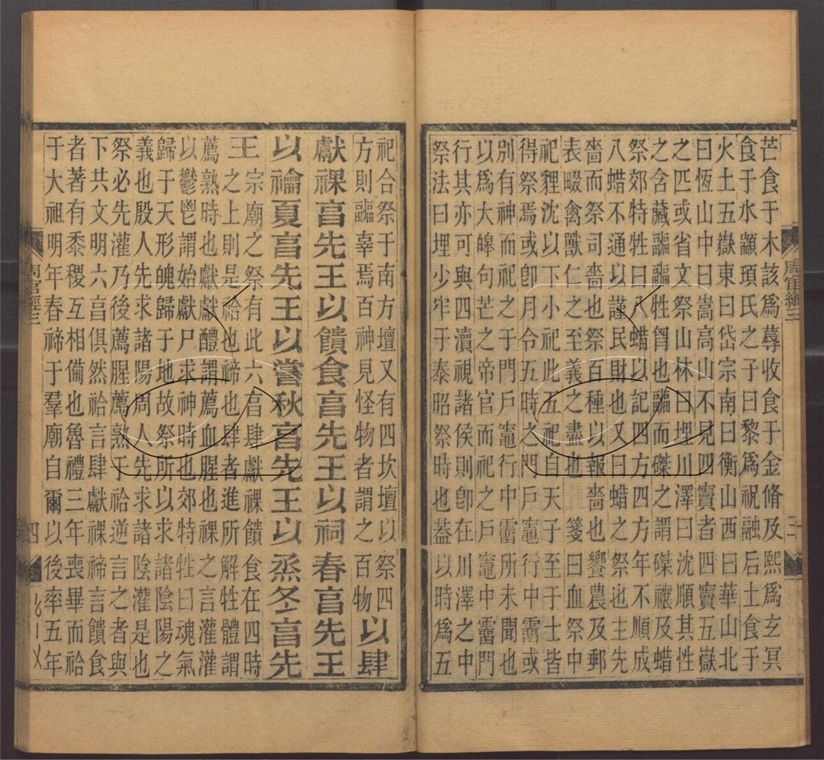 周官經三
芒食于木該爲蓐收食于金脩及熙爲玄冥
食于水顓頊氏之子曰黎爲祝融后土食于
火土五嶽東曰岱宗南曰衡山西曰華山北
曰恆山中曰嵩高山不見四竇者四竇五嶽
之匹或省文祭山林曰埋川澤曰沈順其性
之含藏疈疈牲胷也疈而磔之謂磔禳及蜡
祭郊特牲曰八蜡以記四方四方年不順成
八蜡不通以謹民財也又曰蜡之祭也主先
嗇而祭司嗇也祭百種以報嗇也饗農及郵
表畷禽獸仁之至義之盡也 箋曰血祭中
祀貍沈以下小祀此五祀自天子至于士皆
得祭焉或卽月令五時之門戶竈行中霤或
別有神而祀之于門戶竈行中霤所未聞也
以爲大皞句芒之帝官而祀之戶竈中霤門
行其亦可與四瀆視諸侯則卽在川澤之中
祭法曰埋少牢于泰昭祭時也葢以時爲五
祀合祭于南方壇又有四坎壇以祭四
方則疈辜焉百神見怪物者謂之百物
以肆
獻祼亯先王以饋食亯先王以祠春亯先王
以禴夏亯先王以嘗秋亯先王以烝冬亯先
王
宗廟之祭有此六亯肆獻祼饋食在四時
之上則是祫也禘也肆者進所解牲體謂
薦熟時也獻獻醴謂薦血腥也祼之言灌灌
以鬱鬯謂始獻尸求神時也郊特牲曰魂氣
歸于天形魄歸于地故祭所以求諸陰陽之
義也殷人先求諸陽周人先求諸陰灌是也
祭必先灌乃後薦腥薦熟于祫逆言之者與
下共文明六亯俱然祫言肆獻祼禘言饋食
者著有黍稷互相備也魯禮三年喪畢而祫
于大祖明年春禘于羣廟自爾以後率五年
周官經三
四